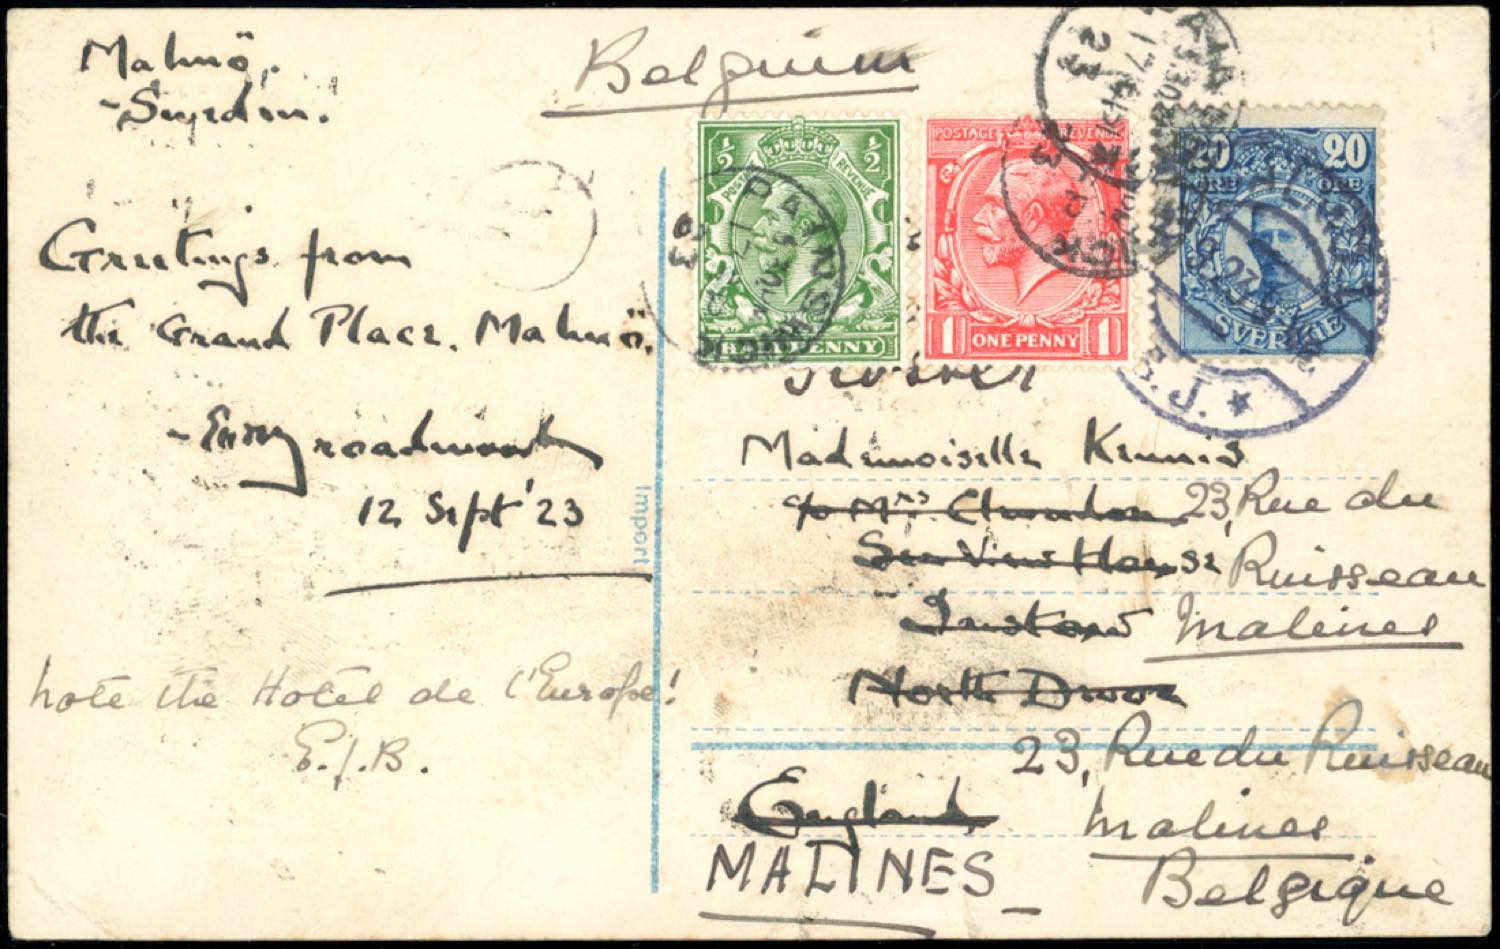 Malmö,
-Sweden.
Belgium
Greetings from
the Grand Place. Malmö.
12 Sept '23
note the Hotel de l'Europe!
E.J.B.
Import
½ ½
POSTAGE REVENUE
HALFPENNY
POSTAGE REVENUE
1 ONE PENNY 1
20 20
ORE ORE
SVERIGE
B.J.
Mademoiselle Kennis
c/o Mrs 23, Rue du
Sea View House, Ruisseau
Instow Malines
North Devon
23, Rue du Ruisseau
England Malines
MALINES Belgique